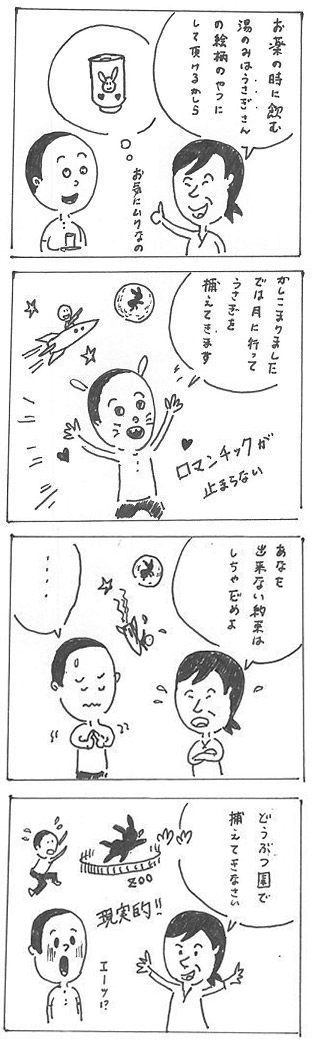 お薬の時に飲む
湯のみはうさぎさん
の絵柄のやつに
して頂けるかしら
お気にいりなの
かしこまりました
では月に行って
うさぎを
捕えてきます
ロマンチックが
止まらない
あなた
出来ない約束は
しちゃだめよ
・・・・
どうぶつ園で
捕えてきなさい
ZOO
現実的!!
エーッ!?